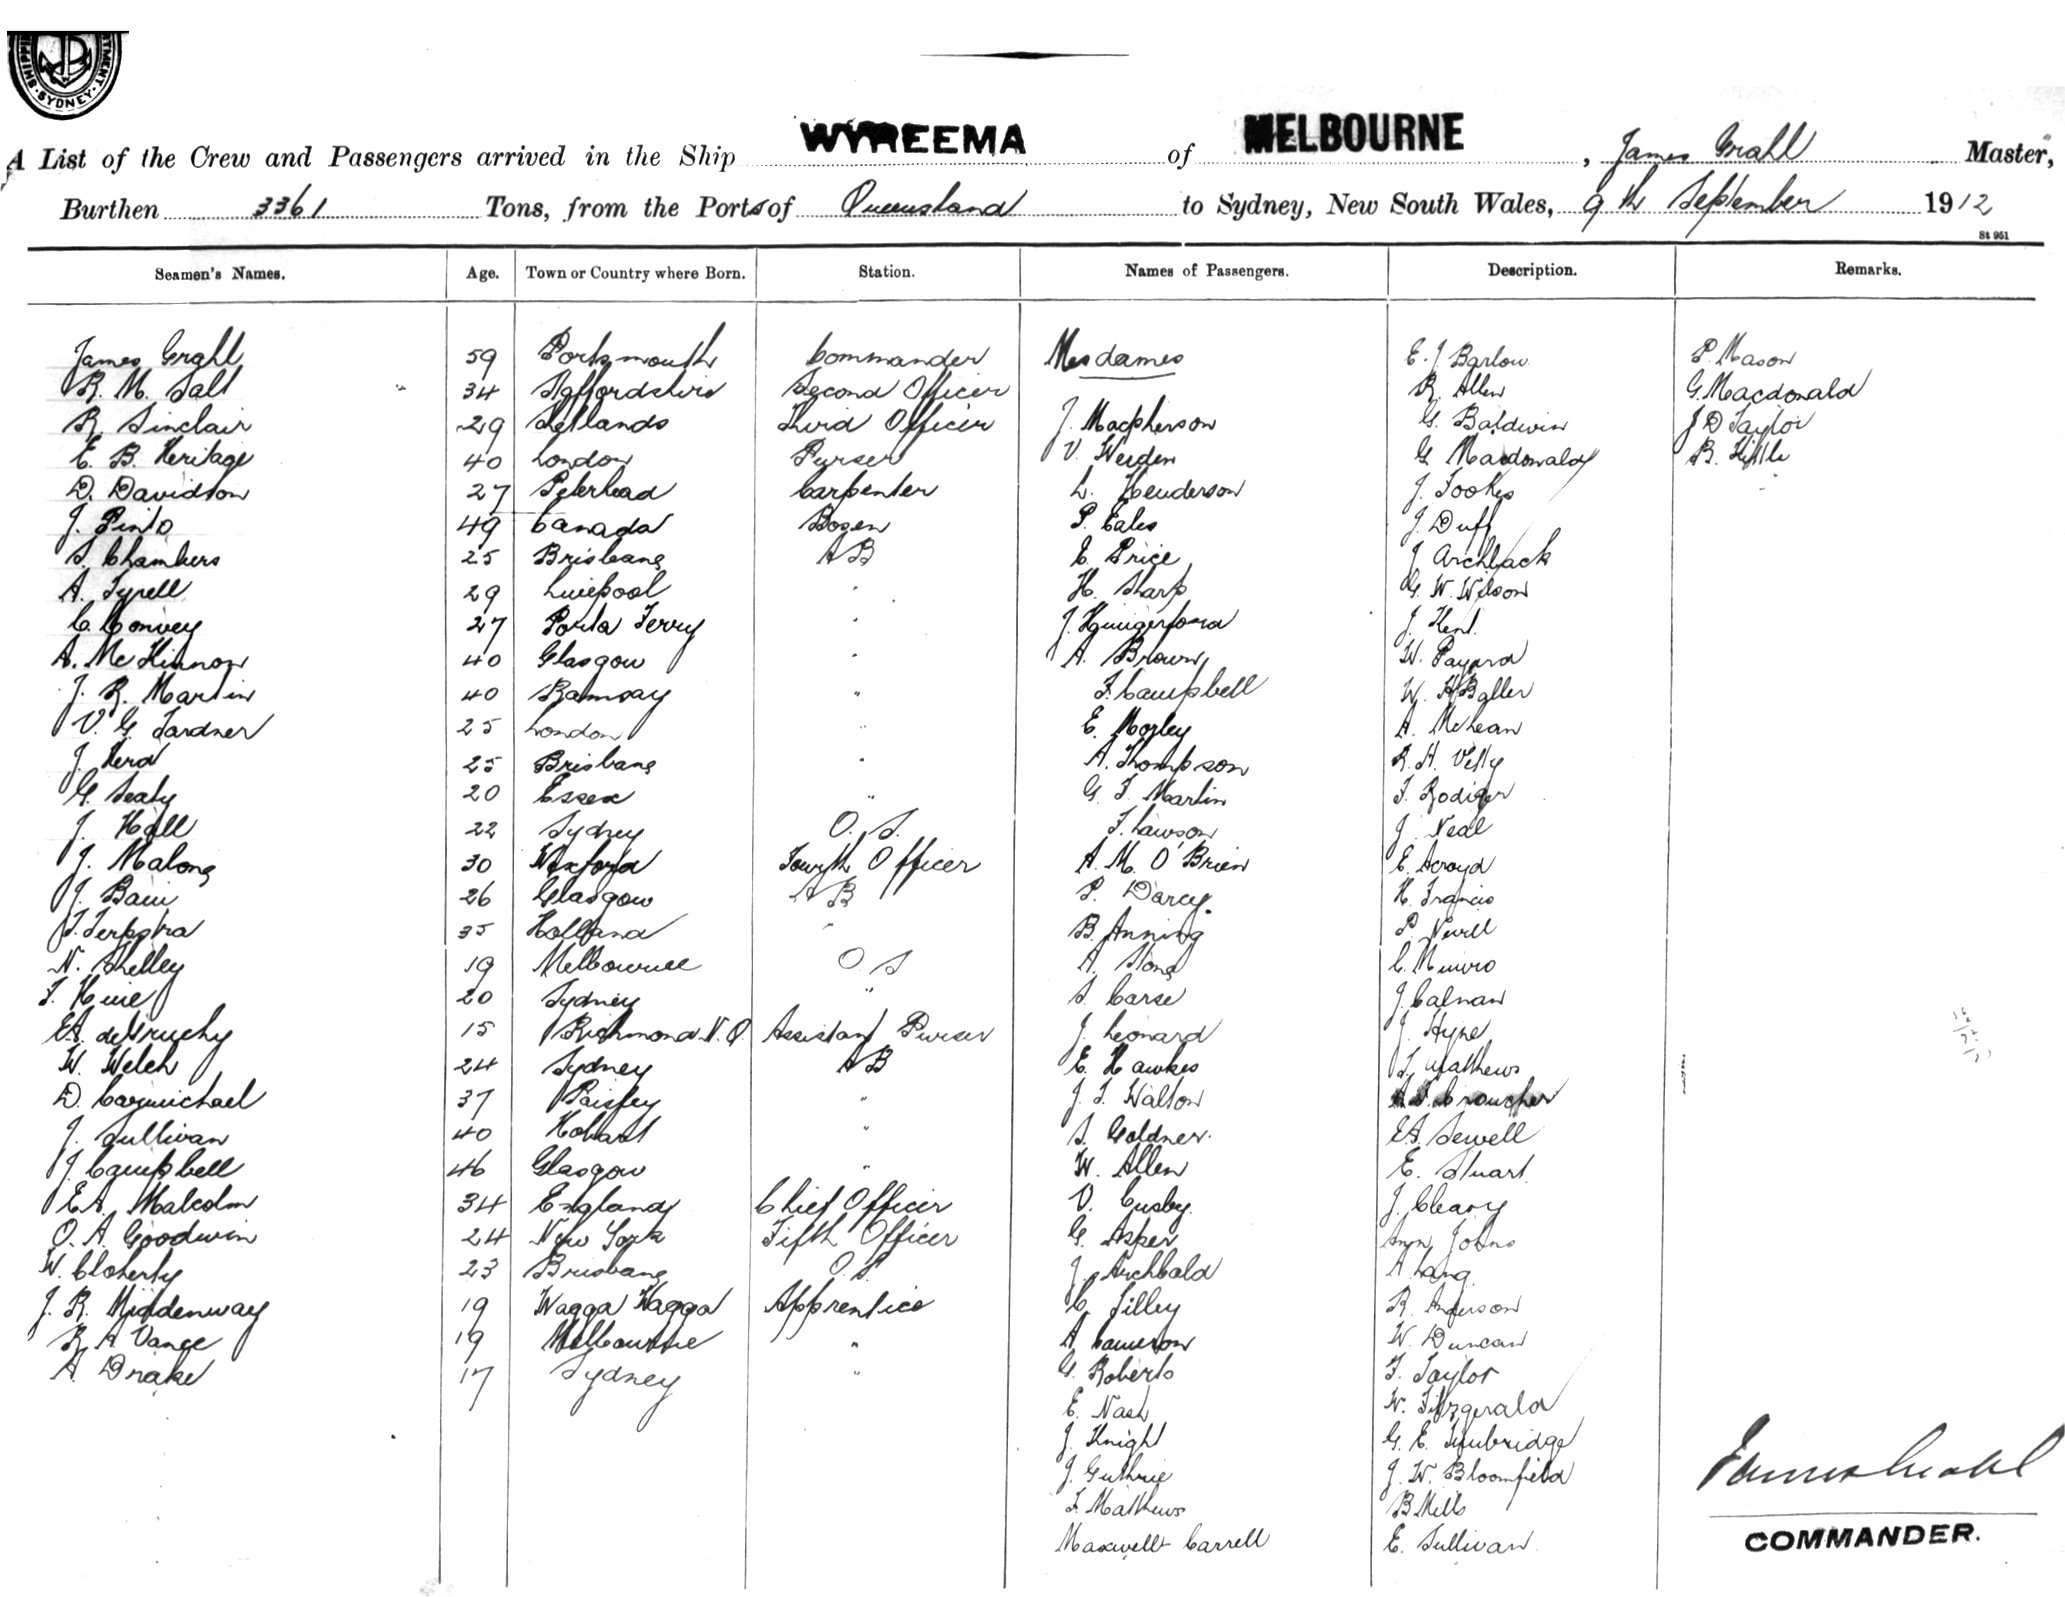 SHIPPING DEPARTMENT SYDNEY
A List of the Crew and Passengers arrived in the Ship WYREEMA of MELBOURNE, James Grahl Master,
Burthen 3361 Tons, from the Ports of Queensland to Sydney, New South Wales, 9th September 1912
St 951
Seamen's Names. Age. Town or Country where Born. Station. Names of Passengers. Description. Remarks.
James Grahl 59 Portsmouth Commander Mesdames E. J. Barlow P. Mason
R. M. Salt 34 Staffordshire Second Officer R. Allen G. Macdonald
R. Sinclair 29 Shetlands Third Officer J. Macpherson G. Baldwin J D Taylor
E. B. Heritage 40 London Purser V. Weiden G Macdonald R. Kittle
D. Davidson 27 Peterhead Carpenter L. Henderson J. Tookes
J. Pinto 49 Canada Bosen P. Eales J. Duff
S. Chambers 25 Brisbane A B E Price J Archback
A. Tyrell 29 Liverpool " H. Sharp G. W. Wilson
C. Convey 27 Porta Ferry " J. Hungerford J. Kent
A. McKinnon 40 Glasgow " A. Brown W. Payard
J. R. Martin 40 Ramsay " F. Campbell W. H Baller
V. G. Gardner 25 London " E. Morley A. McLean
J. Herd 25 Brisbane " A. Thompson R. H. Velly
G. Sealy 20 Essex " G. F. Martin F. Rodiger
J. Hall 22 Sydney O. S. F. Lawson J. Neal
J. Malone 30 Wexford Fourth Officer A. M. O'Brien E. Acroyd
J. Bain 26 Glasgow A B P. Darcy. H. Francis
T. Terpstra 35 Holland " B. Anning P. Nevell
N. Shelley 19 Melbourne O S A. Stone C. Munro
F. Hine 20 Sydney " S. Carse J. Calnan
E.A. deGruchy 15 Richmond N. Q. Assistant Purser J. Leonard J. Hyne
W. Welch 24 Sydney A B E. Hawkes T. Mathews
D. Carmichael 37 Paisley " J. F. Walton Croucher
J. Sullivan 40 Hobart " S. Goldner. E.A. Sewell
J. Campbell 46 Glasgow " W. Allen E. Stuart
E.A. Malcolm 34 England Chief Officer V. Cusby. J. Cleary
O. A. Goodwin 24 New York Fifth Officer G. Asper Ann Johns
W. Cloherty 23 Brisbane O. S J. Archbald A Lang.
J. R. Middenway 19 Wagga Wagga Apprentice C. Tilley R. Anderson
R. A Vance 19 Melbourne " A Cameron W. Duncan
A. Drake 17 Sydney " G. Roberts F. Taylor
E. Nash W. Fitzgerald
J. Knight G. E. Timbridge
J. Guthrie J. W. Bloomfield
F. Mathews B Mills
Maxwell Carrell E. Sullivan
James Grahl
COMMANDER.